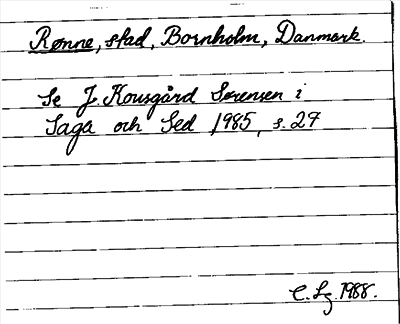 Rønne, stad, Bornholm, Danmark.
Se J. Kousgård Sørensen i
Saga och Sed 1985, s. 27
C. Lg. 1988.